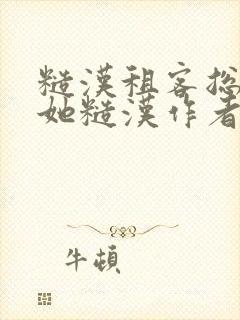 糙漢租客總
她糙漢作者
牛頓